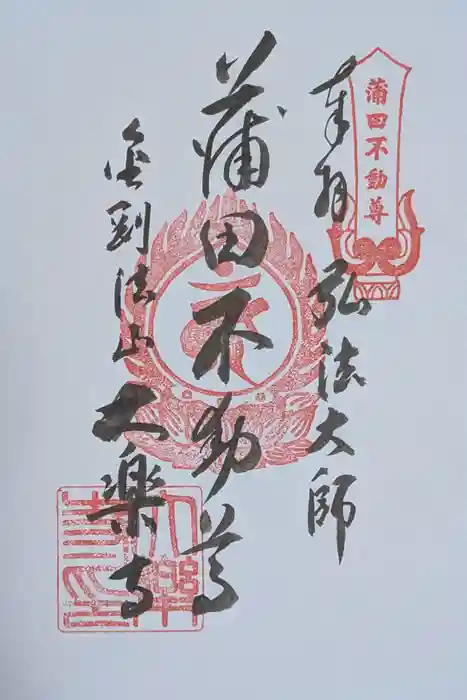 蒲田不動尊
奉拝 弘法大師
蒲田不動尊
金剛法山 大楽寺